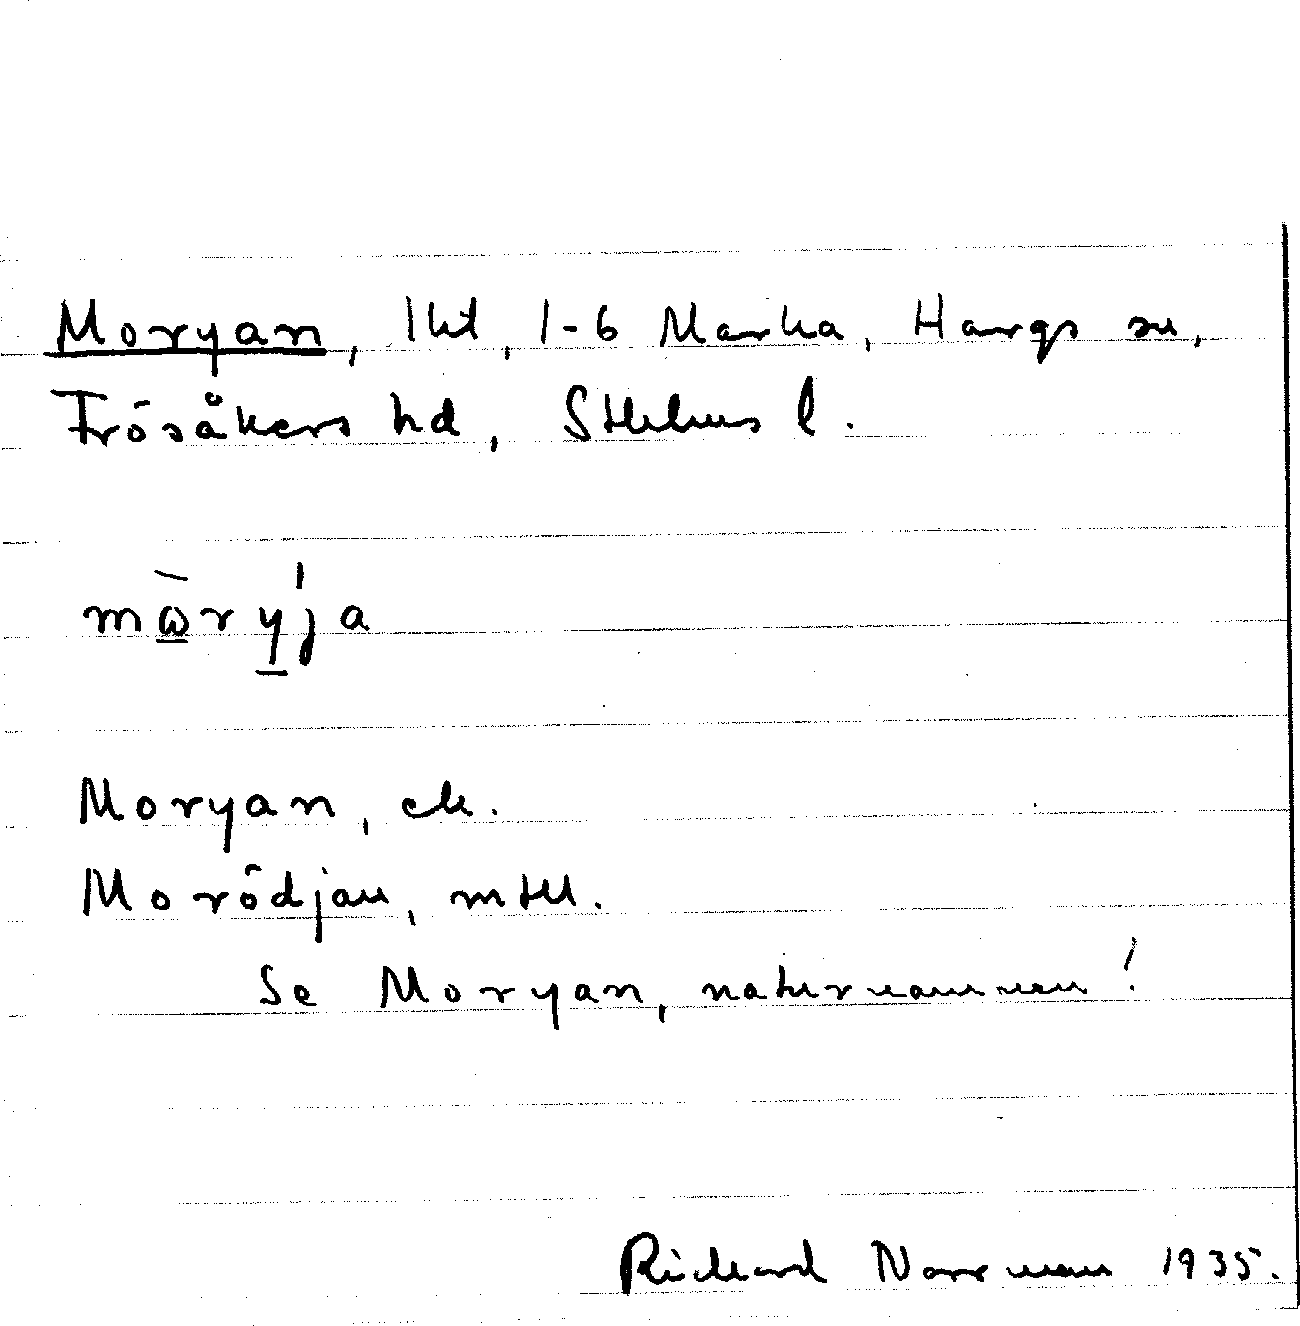 Moryan, lht, 1-6 Marka, Hargs sn,
Frösåkers hd, Sthlms l.
mὼrýja
Moryan, ek.
Morödjan, mtll.
Se Moryan, naturnamnen!
Richard Norrman 1935.